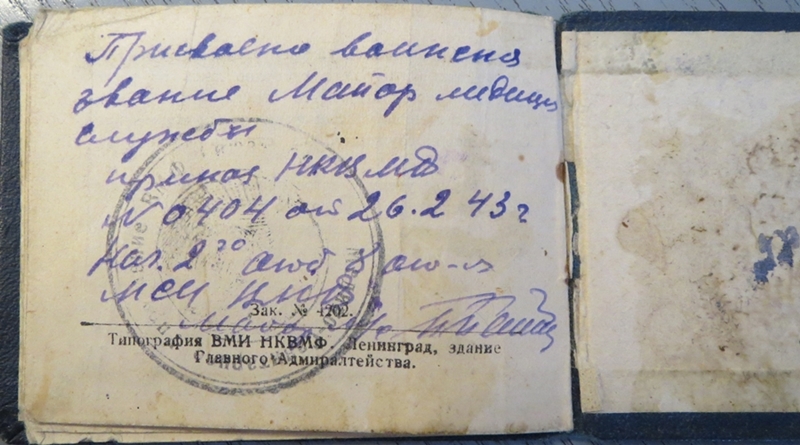 Присвоено воинское
звание Майор медицин
службы
приказ НКВМФ
№ 0404 от 26.2 43 г
Нач. 2го отд
МСУ ВМФ
Зак. № 1202.
Типография ВМИ НКВМФ. Ленинград, здание
Главного Адмиралтейства.